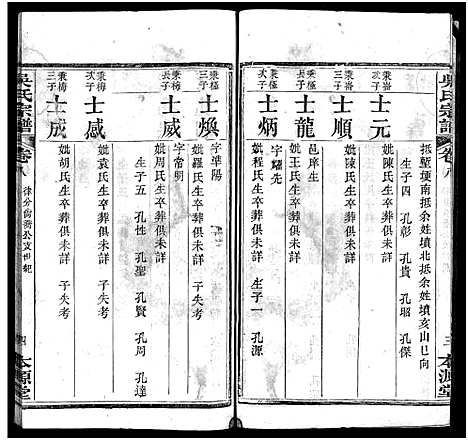 吳氏宗譜
卷八
三
本源堂
抵堅埂南抵余姓墳北抵余姓墳亥山巳向
生子四 孔彰 孔貴 孔昭 孔傑
秉崙三子
士元
妣陳氏生卒葬俱未詳
士順
妣陳氏生卒葬俱未詳
秉極次子
士龍
邑庠生
妣王氏生卒葬俱未詳
士炳
字耀先
妣程氏生卒葬俱未詳 生子一 孔源
秉極三子
士煥
字準陽
妣羅氏生卒葬俱未詳 子失考
秉樗長子
士威
字常明
妣周氏生卒葬俱未詳
生子五 孔性 孔聖 孔賢 孔周 孔達
秉樗次子
士感
妣袁氏生卒葬俱未詳 子失考
秉樗三子
士成
妣胡氏生卒葬俱未詳 子失考
吳氏宗譜
卷八
四
本源堂